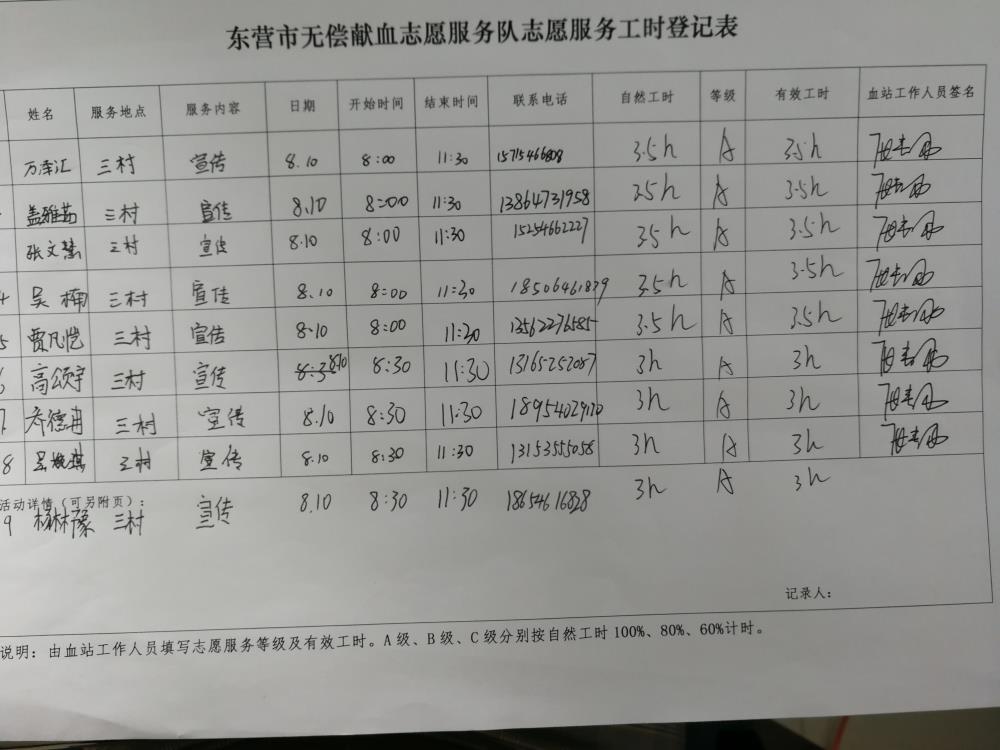 东营市无偿献血志愿服务队志愿服务工时登记表
姓名 服务地点 服务内容 日期 开始时间 结束时间 联系电话 自然工时 等级 有效工时 血站工作人员签名
万泽汇 三村 宣传 8.10 8:00 11:30 15715466808 3.5h A 3.5h
盖雅茹 三村 宣传 8.10 8:00 11:30 13864731958 3.5h A 3.5h
张文慧 三村 宣传 8.10 8:00 11:30 15254662227 3.5h A 3.5h
4 吴楠 三村 宣传 8.10 8:00 11:30 3.5h A 3.5h
5 贾凡恺 三村 宣传 8.10 8:00 11:30 13562276585 3.5h A 3.5h
6 高颂宇 三村 宣传 8.10 8:30 11:30 13165252087 3h A 3h
7 乔德冉 三村 宣传 8.10 8:30 11:30 18954029170 3h A 3h
8 三村 宣传 8.10 8:30 11:30 13153555058 3h A 3h
活动详情（可另附页）：
9 杨林豫 三村 宣传 8.10 8:30 11:30 18654616828 3h A 3h
记录人：
说明：由血站工作人员填写志愿服务等级及有效工时。A级、B级、C级分别按自然工时100%、80%、60%计时。